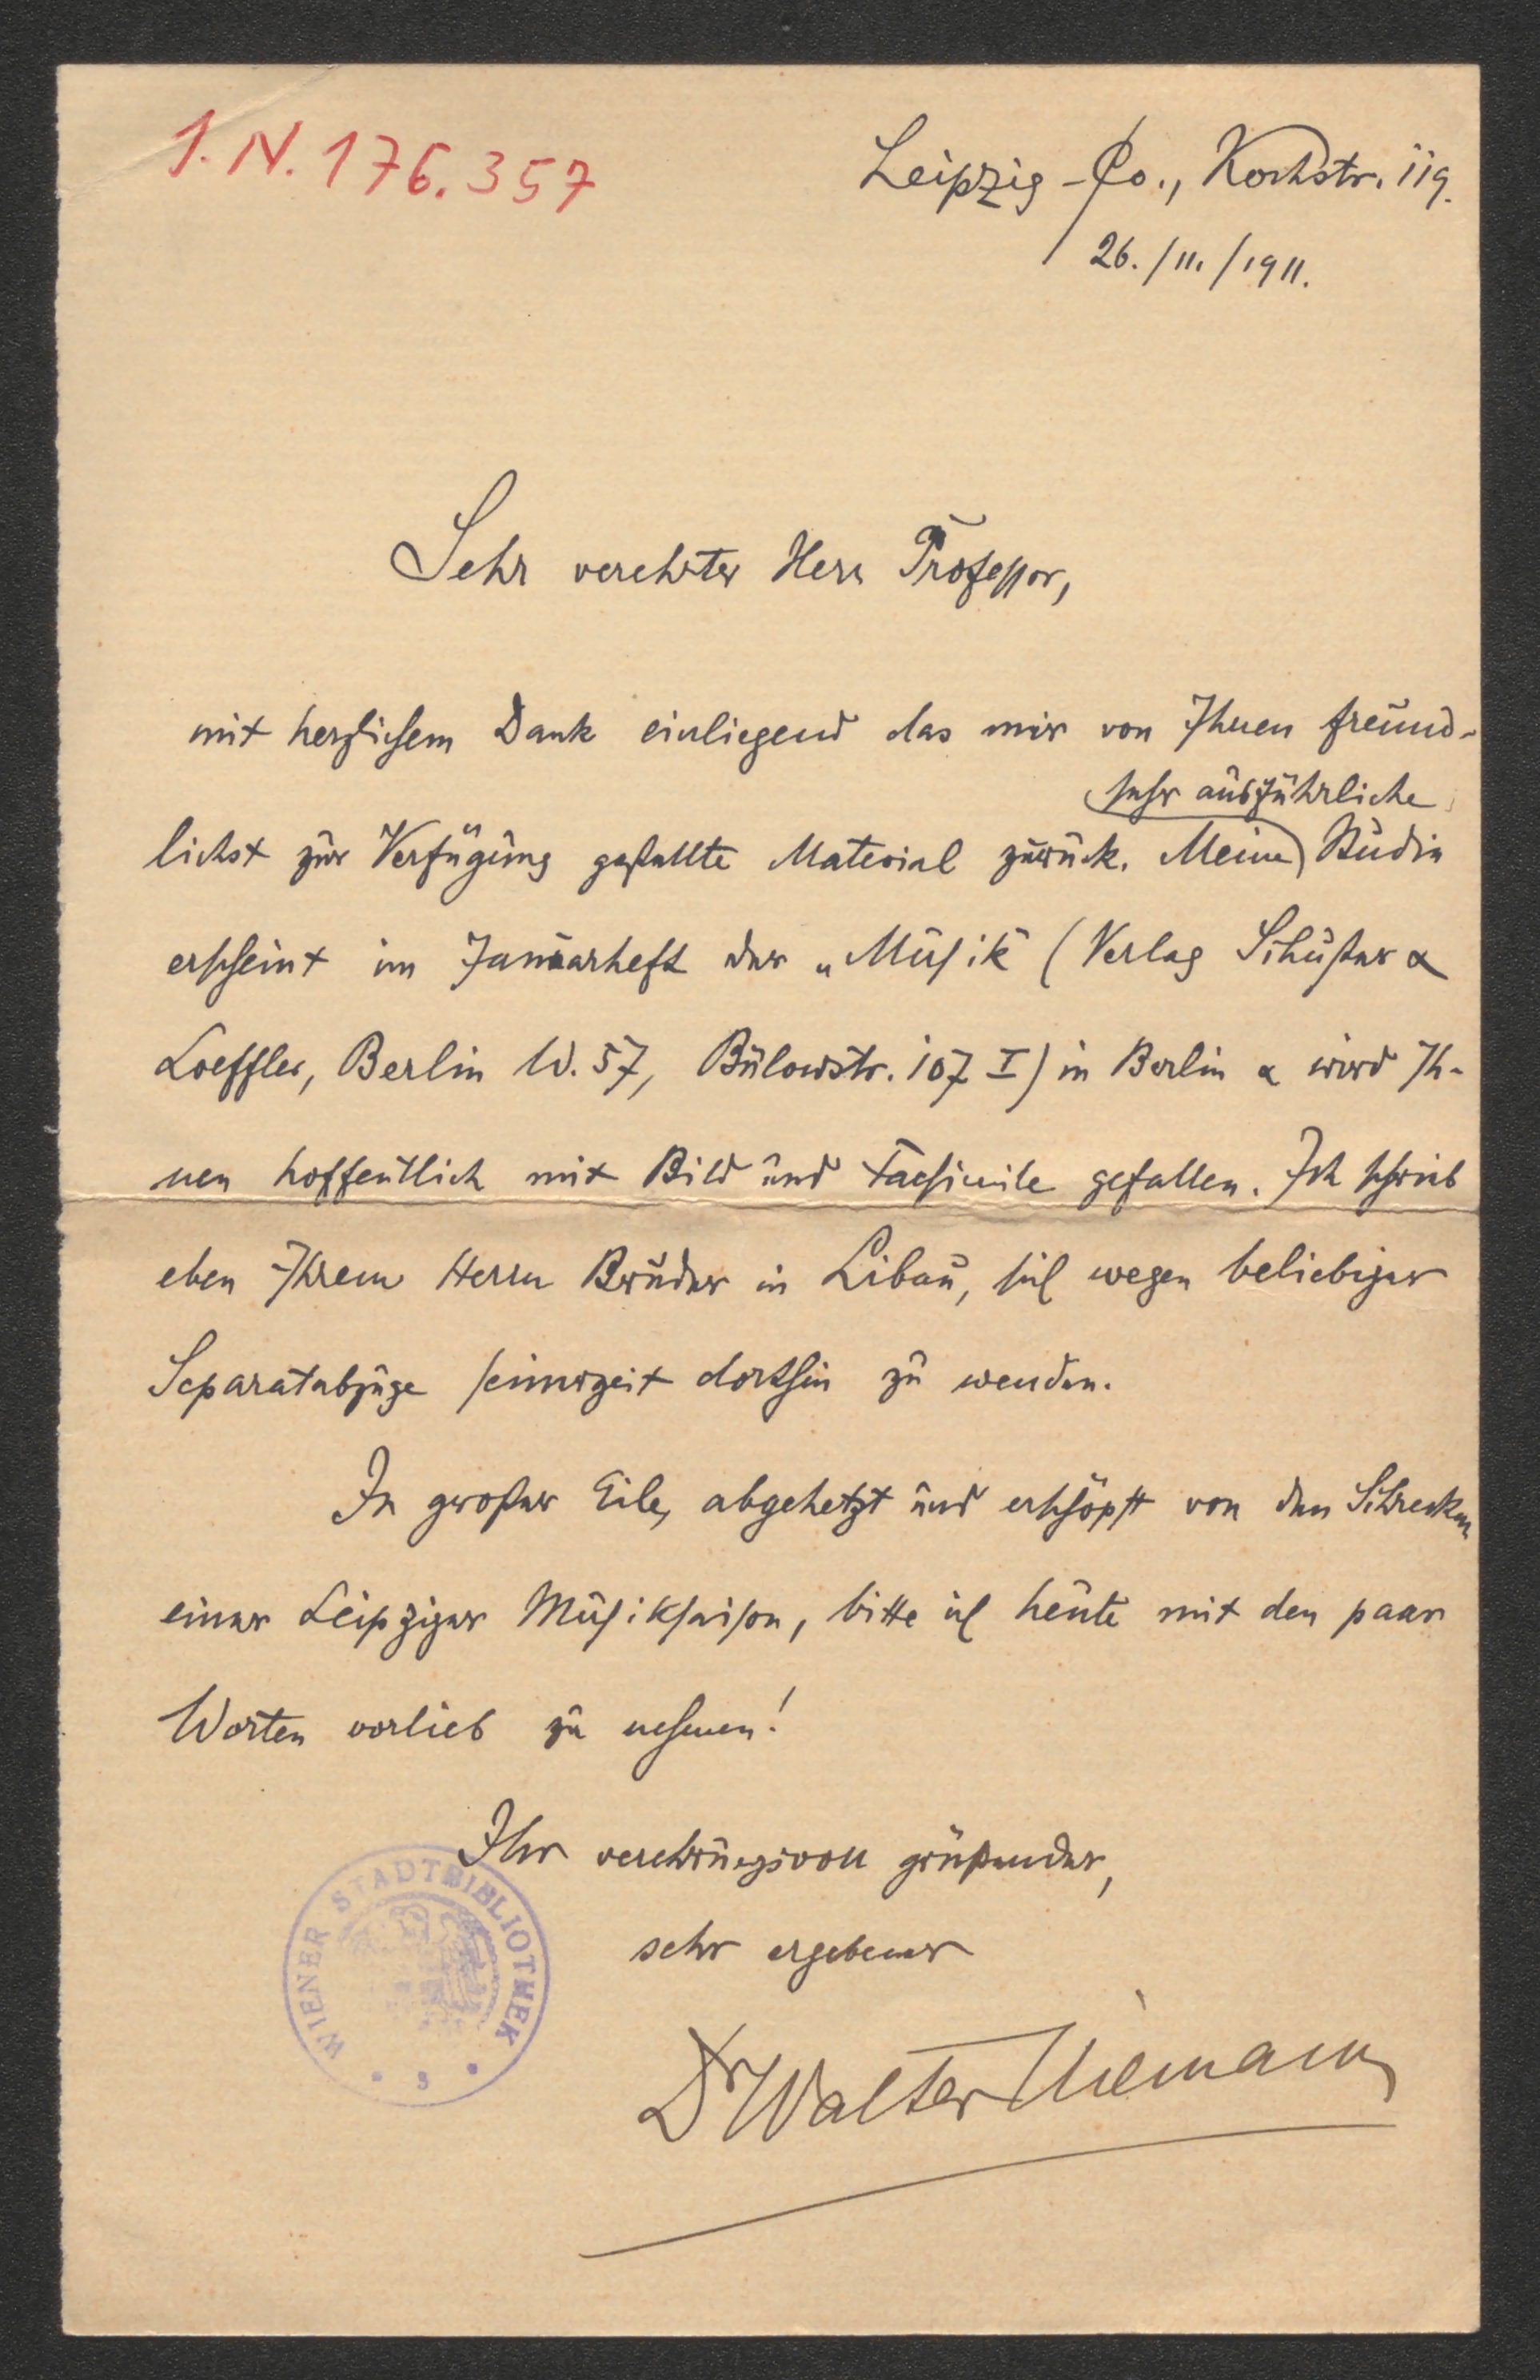 I.N. 176.357
Leipzig-Co., Kochstr. 119.
26./11./1911.
Sehr verehrter Herr Professor,
mit herzlichem Dank einliegend das mir von Ihnen freund-
sehr ausführliche
lichst zur Verfügung gestellte Material zurück. Meine Studie
erscheint im Januarheft der „Musik" (Verlag Schuster &
Loeffler, Berlin W. 57, Bülowstr. 107 I) in Berlin & wird Ih-
nen hoffentlich mit Bild und Facsimile gefallen. Ich schrieb
eben Ihrem Herrn Bruder in Libau, sich wegen beliebiger
Separatabzüge seinerzeit dorthin zu wenden.
In großer Eile, abgehetzt und erschöpft von den Schrecken
einer Leipziger Musiksaison, bitte ich heute mit den paar
Worten vorlieb zu nehmen!
Ihr verehrungsvoll grüßender,
sehr ergebener
Dr Walter Niemann
WIENER STADTBIBLIOTHEK